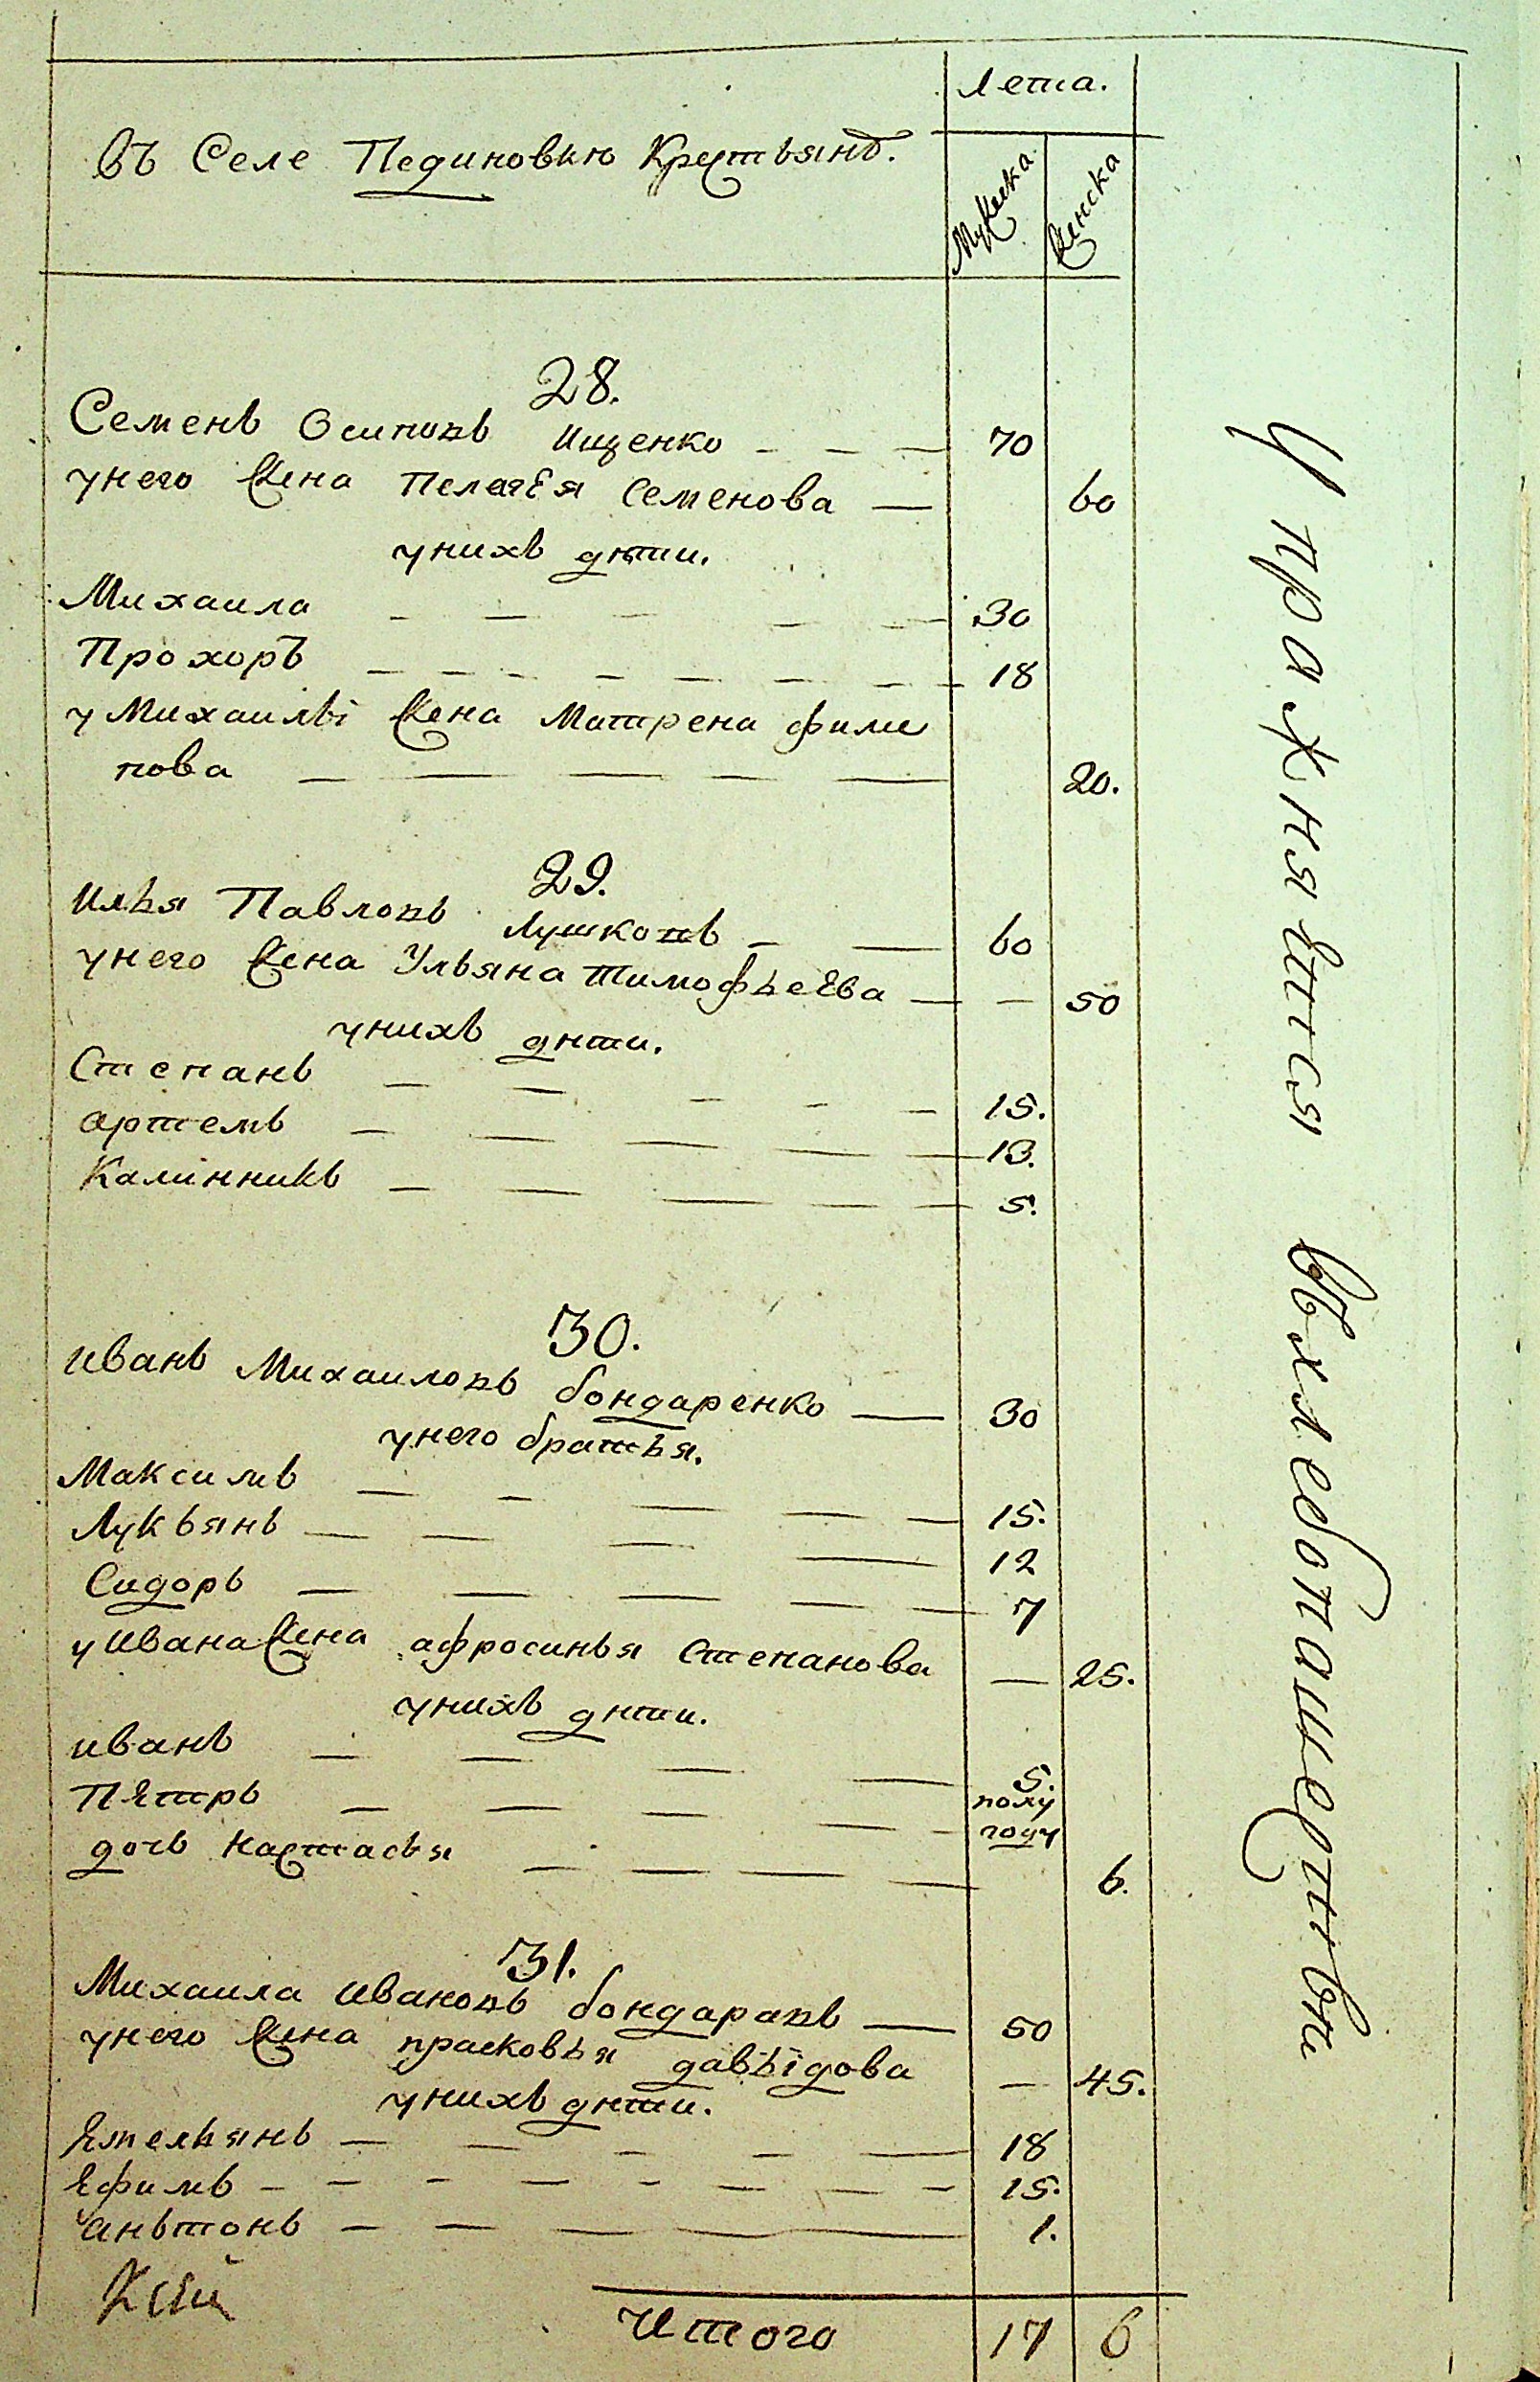 лета.
въ Селе Пединовкю Крестьянъ.
Мужеска
Женска
28.
Семенъ Осиповъ Ищенко — — — 70
унего Жена Пелагея Семенова — 60
унихъ дѣти.
Михаила — — — — — 30
Прохоръ — — — — — — — — 18
у Михаилы Жена Матрена Фили
пова — — — — — 20.
29.
Илья Павловъ Лушковъ — — 60
унего Жена Ульяна Тимофьеева — — 50
унихъ дѣти.
Степанъ — — — — — 15.
артемъ — — — — — 13.
Калинникъ — — — — — 5.
30.
иванъ Михаиловъ бондаренко — 30
унего братья.
Максимъ — — — — — 15.
Лукьянъ — — — — 12
Сидоръ — — — — — 7
у ивана Жена афросинья Степанова — 25.
унихъ дѣти.
иванъ — — — — 5.
Петръ — — — — — полу
году
дочь настасья — — — — 6.
31.
Михаила ивановъ бондаравъ — 50
унего Жена прасковья давыдова — 45.
унихъ дѣти.
Емельянъ — — — — — 18
Ефимъ — — — — — — — — 15.
аньтонъ — — — — — 1.
Итого 17 6
Упражнявтся въхлебопашествѣ